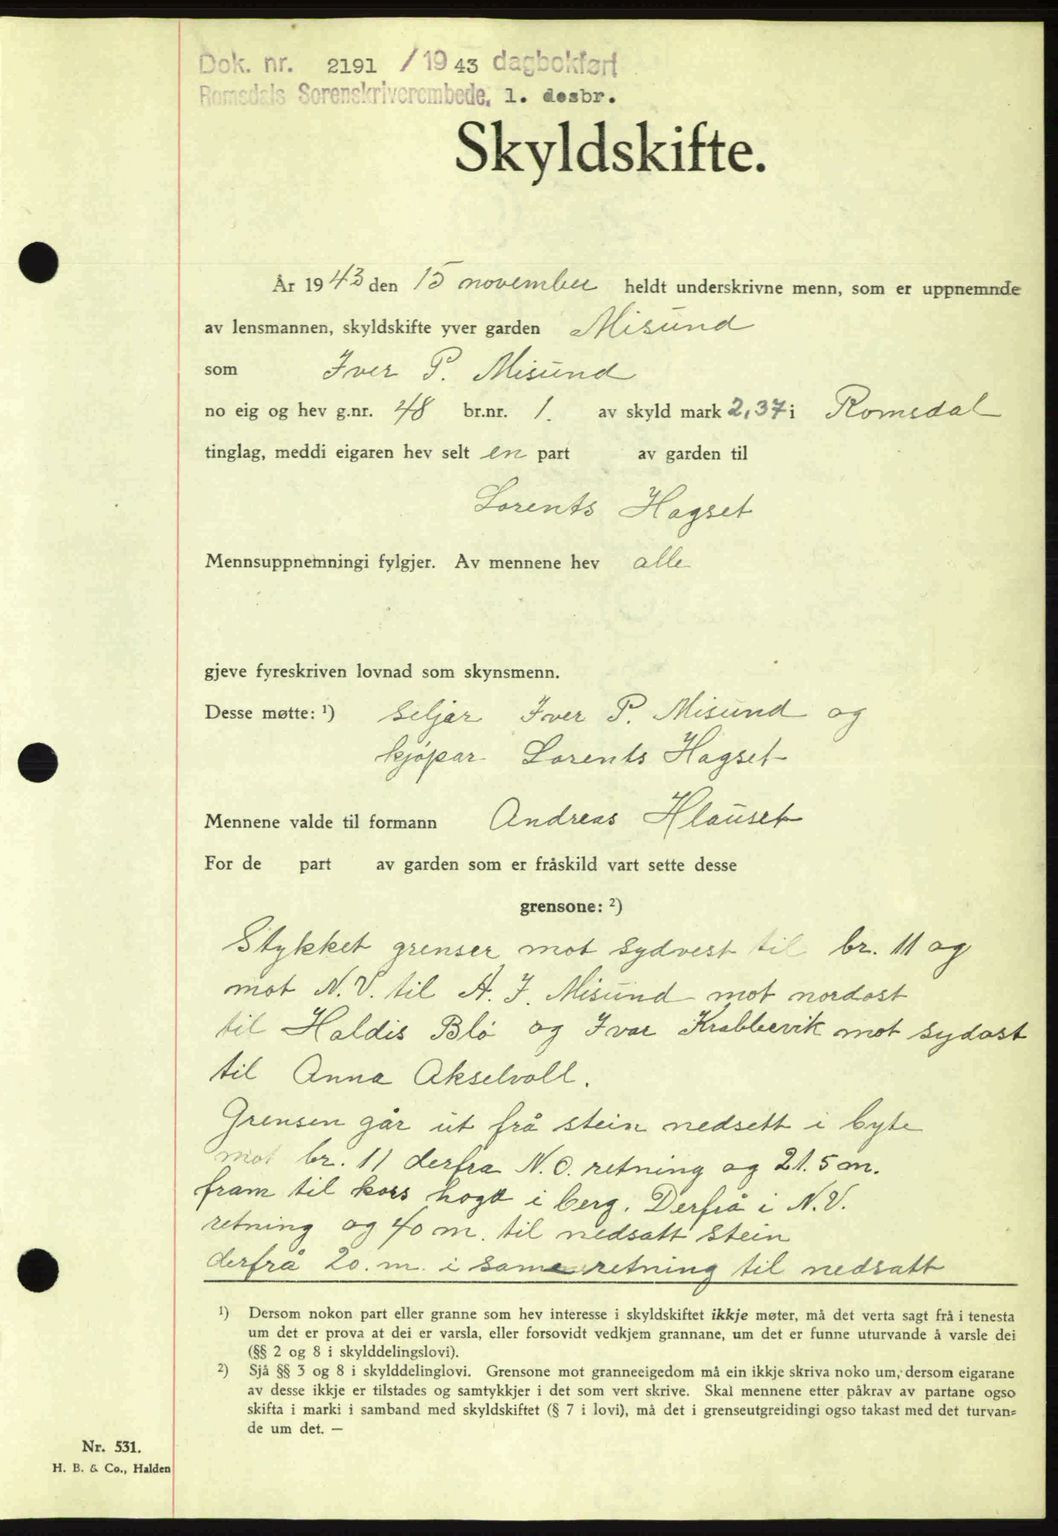 Dok. nr. 2191 /1943 dagbokført
Romsdals Sorenskriverembede, 1. desbr.
Skyldskifte.
År 1943 den 15 november heldt underskrivne menn, som er uppnemnde
av lensmannen, skyldskifte yver garden Misund
som Iver P. Misund
no eig og hev g.nr. 48 br.nr. 1. av skyld mark 2,37 i Romsdal
tinglag, meddi eigaren hev selt en part av garden til
Lorents Hagset
Mennsuppnemningi fylgjer. Av mennene hev alle
gjeve fyreskriven lovnad som skynsmenn.
Desse møtte: ¹) Seljar Iver P. Misund og
kjøpar Lorents Hagset
Mennene valde til formann Andreas Hlauset
For de part av garden som er fråskild vart sette desse
grensone: ²)
Stykket grenser mot sydvest til br. 11 og
mot N.V. til A. J. Misund mot nordost
til Haldis Blø og Ivar Krabbevik mot sydost
til Anna Akselvoll.
Grensen går ut frå stein nedsett i byte
mot br. 11 derfra N.O. retning og 21.5 m.
fram til kors hogd i berg. Derfrå i N.V.
retning og 40 m. til nedsatt stein
derfrå 20. m. i same retning til nedsatt
¹) Dersom nokon part eller granne som hev interesse i skyldskiftet ikkje møter, må det verta sagt frå i tenesta
um det er prova at dei er varsla, eller forsovidt vedkjem grannane, um det er funne uturvande å varsle dei
(§§ 2 og 8 i skylddelingslovi).
²) Sjå §§ 3 og 8 i skylddelinglovi. Grensone mot granneeigedom må ein ikkje skriva noko um, dersom eigarane
av desse ikkje er tilstades og samtykkjer i det som vert skrive. Skal mennene etter påkrav av partane ogso
skifta i marki i samband med skyldskiftet (§ 7 i lovi), må det i grenseutgreidingi ogso takast med det turvan=
de um det. —
Nr. 531.
H. B. & Co., Halden